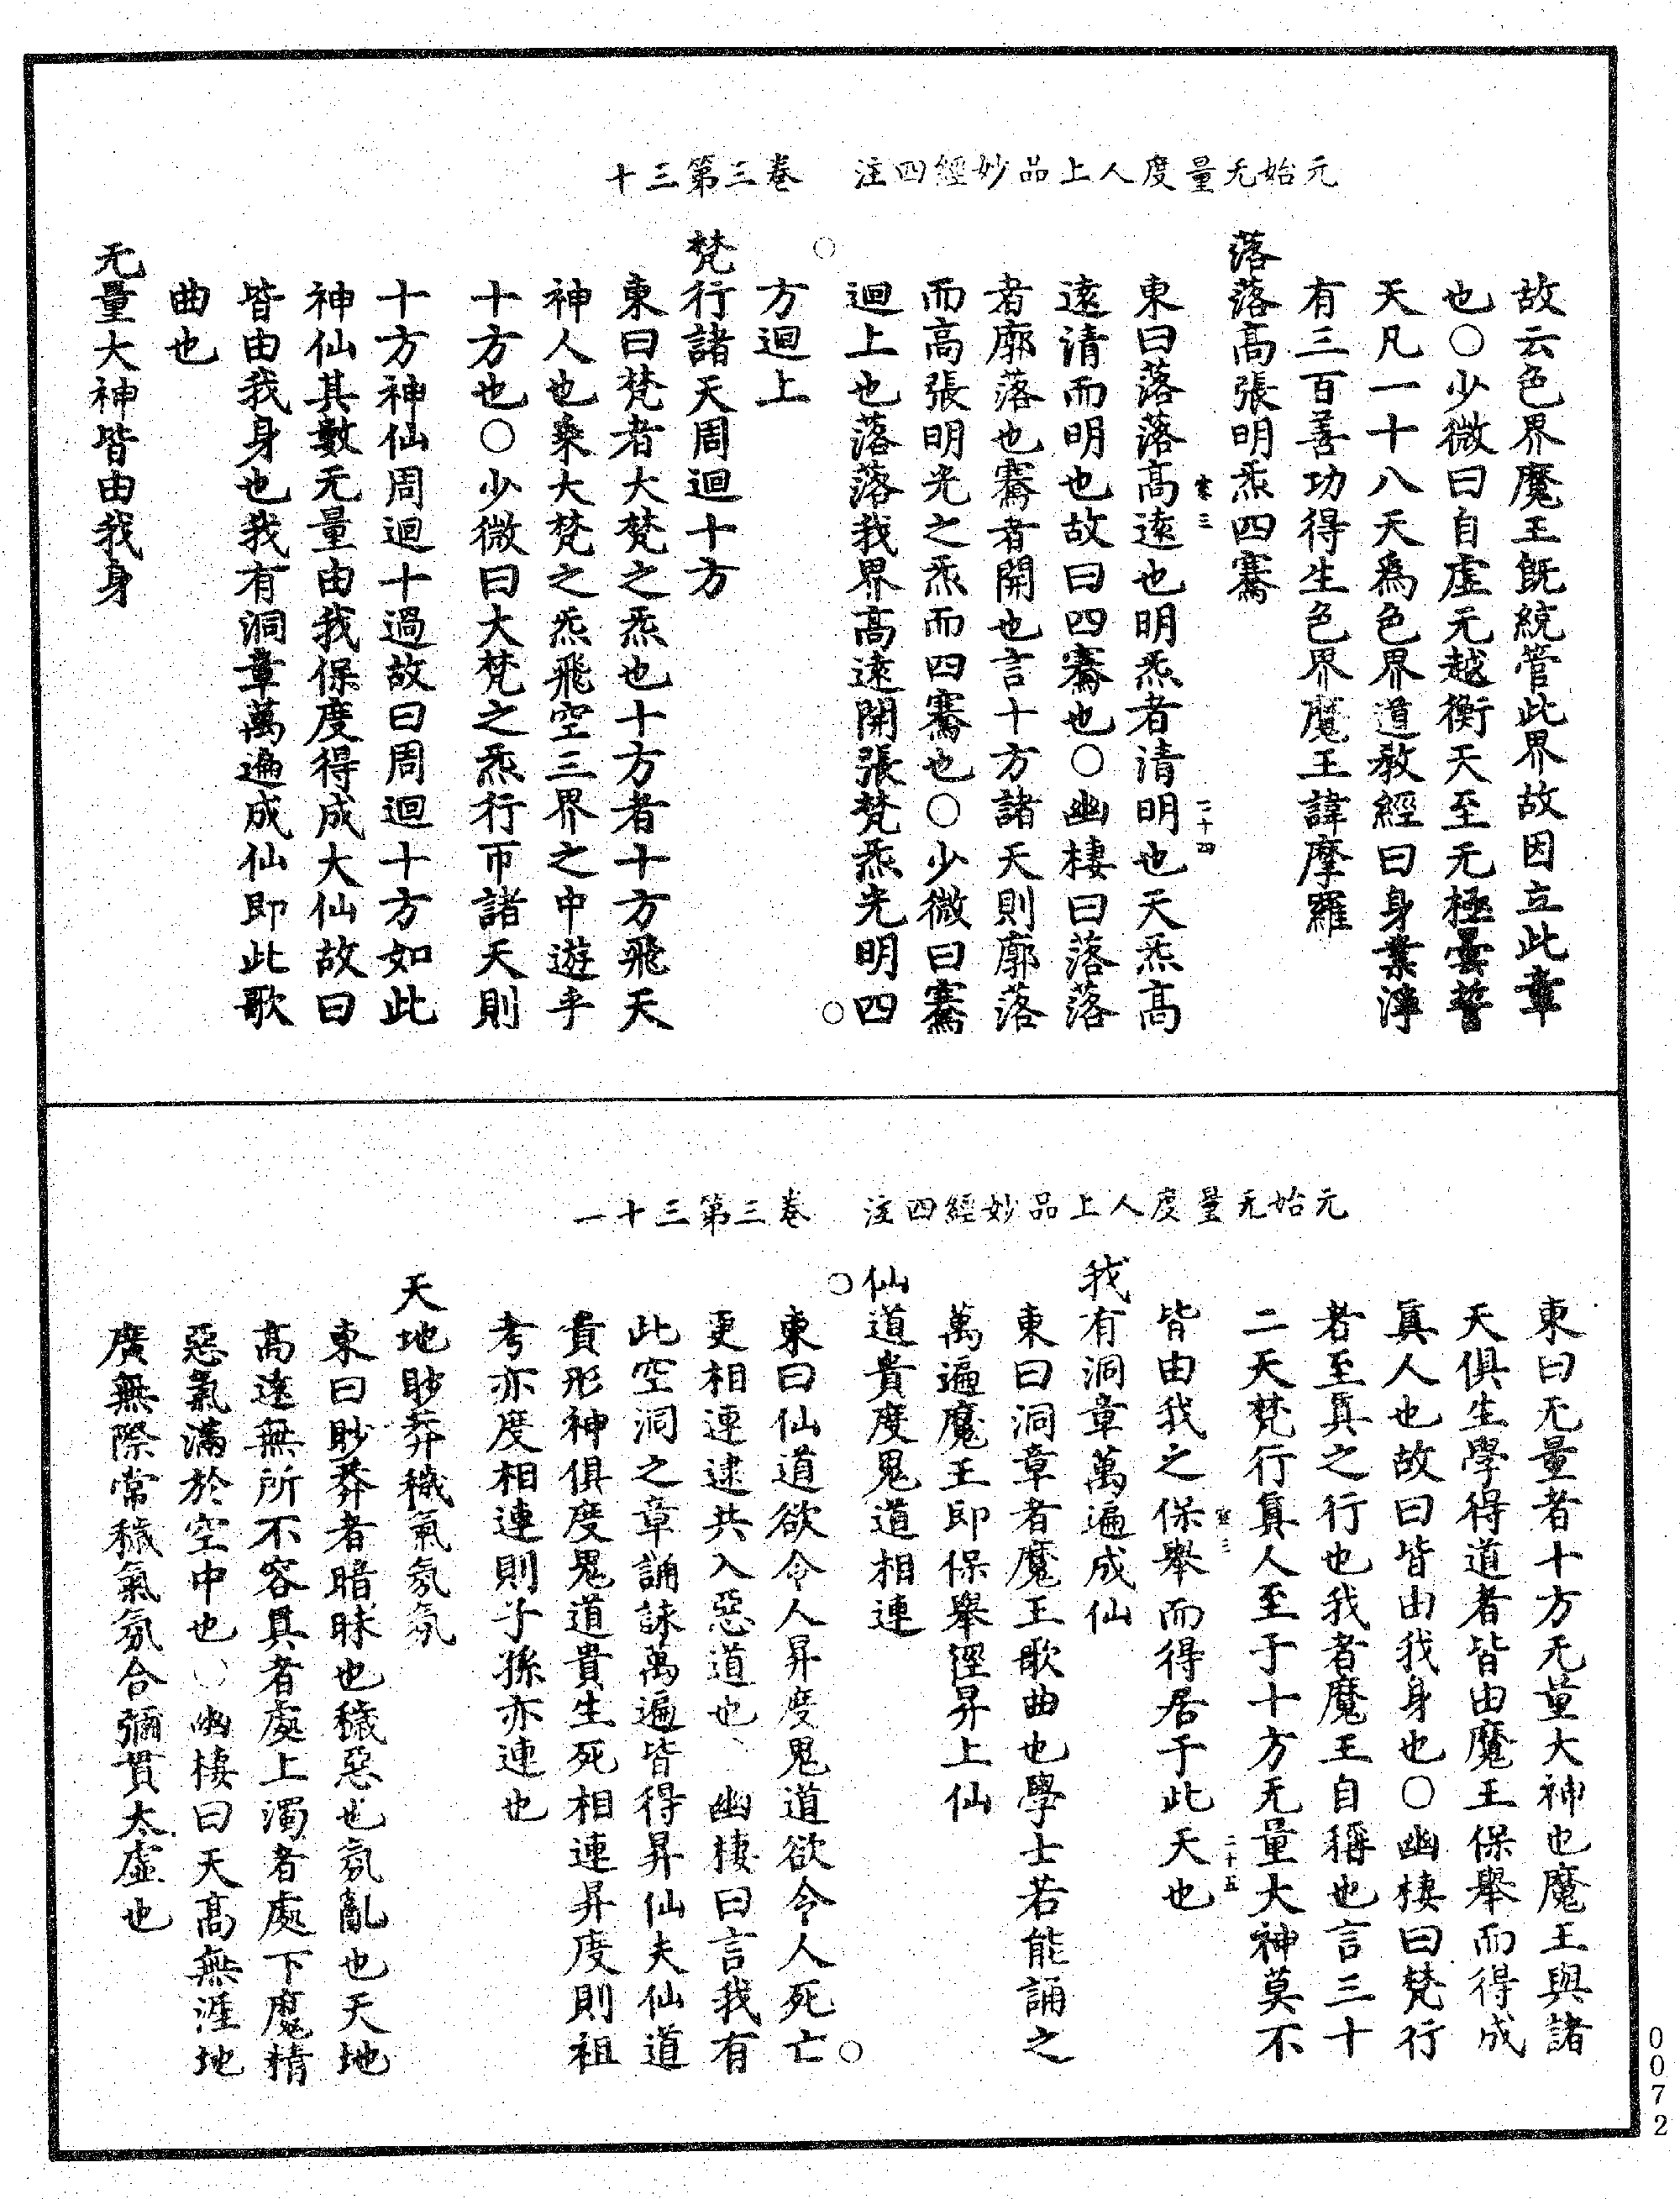 元始无量度人上品妙經四注　卷三第三十
故云色界魔王既統管此界故因立此章
也〇少微曰自虛无越衡天至无極曇誓
天凡一十八天為色界道教經曰身業淨
有三百善功得生色界魔王諱摩羅
落落高張明炁四騫
東曰落落高遠也明炁者清明也天炁高
寒三　二十四
遠清而明也故曰四騫也〇幽棲曰落落
者廓落也騫者開也言十方諸天則廓落
而高張明光之炁而四騫也〇少微曰騫
迴上也落落我界高遠開張梵炁光明四
方迴上
梵行諸天周迴十方
東曰梵者大梵之炁也十方者十方飛天
神人也乘大梵之炁飛空三界之中遊乎
十方也〇少微曰大梵之炁行帀諸天則
十方神仙周迴十過故曰周迴十方如此
神仙其數无量由我保度得成大仙故曰
皆由我身也我有洞章萬遍成仙即此歌
曲也
无量大神皆由我身
元始无量度人上品妙經四注　卷三第三十一
東曰无量者十方无量大神也魔王與諸
天俱生學得道者皆由魔王保舉而得成
真人也故曰皆由我身也〇幽棲曰梵行
者至真之行也我者魔王自稱也言三十
二天梵行真人至于十方无量大神莫不
寒三　二十五
皆由我之保舉而得居于此天也
我有洞章萬遍成仙
東曰洞章者魔王歌曲也學士若能誦之
萬遍魔王即保舉徑昇上仙
仙道貴度鬼道相連
東曰仙道欲令人昇度鬼道欲令人死亡
更相連逮共入惡道也　幽棲曰言我有
此空洞之章誦詠萬遍皆得昇仙夫仙道
貴形神俱度鬼道貴生死相連昇度則祖
考亦度相連則子孫亦連也
天地眇莽穢氣氛氛
東曰眇莽者暗昧也穢惡也氛亂也天地
高遠無所不容具者處上濁者處下魔精
惡氣滿於空中也〇幽棲曰天高無涯地
廣無際常穢氣氛合彌貫太虛也
0072